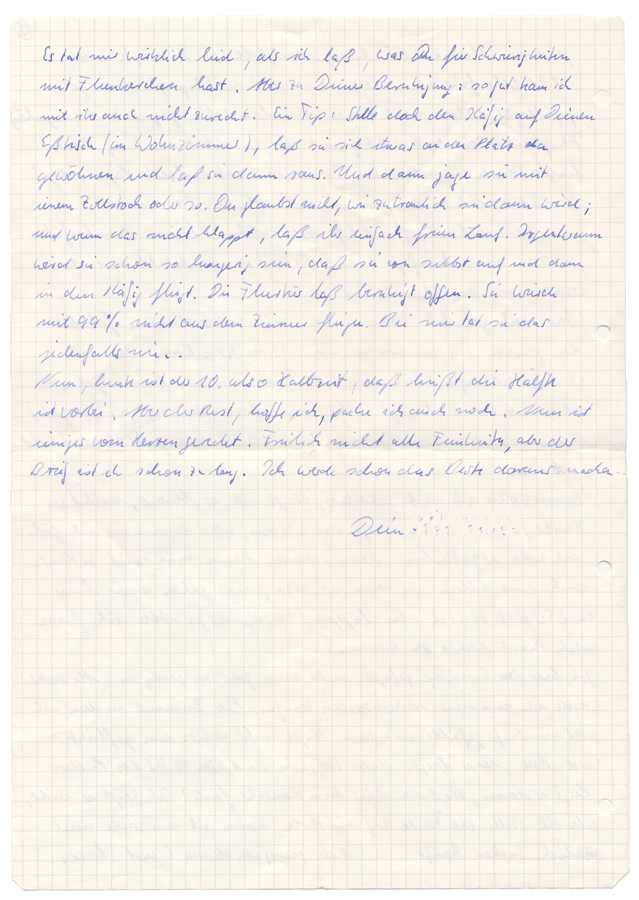 Es tat mir wirklich leid, als ich laß, was Du für Schwierigkeiten
mit hast. Aber zu Deiner Beruhigung: so gut kam ich
mit ihr auch nicht zurecht. Ein Tip: Stelle doch den Käfig auf Deinen
Eßtisch (im Wohnzimmer), laß sie sich etwas an den Platz da
gewöhnen und laß sie dann raus. Und dann jage sie mit
einem Zollstock oder so. Du glaubst nicht, wie zutraulich sie dann wird;
und wenn das nicht klappt, laß ihr einfach freien Lauf. Irgendwann
wird sie schon so hungrig sein, daß sie von selbst auf und dann
in den Käfig fliegt. Die Flurtür laß beruhigt offen. Sie wird
mit 99% nicht aus dem Zimmer fliegen. Bei mir tat sie das
jedenfalls nie...
Nun, heute ist der 10. also Halbzeit, daß heißt die Hälfte
ist vorbei. Aber der Rest, hoffe ich, packe ich auch noch. Nun ist
einiges vom Herzen geredet. Freilich nicht alle Feinheiten, aber der
Brief ist eh schon zu lang. Ich werde schon das Beste daraus machen..
Dein